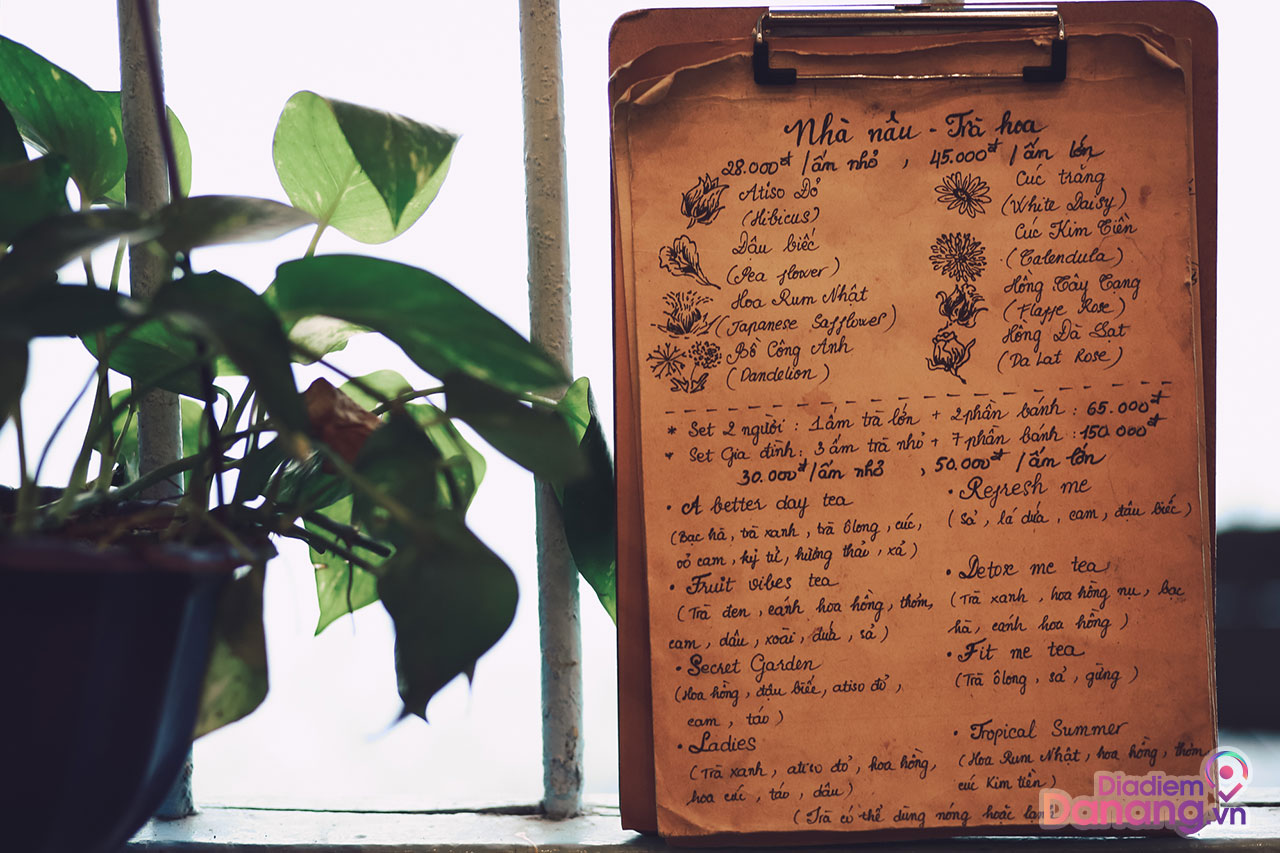 Nhà nẫu - Trà hoa
28.000đ /ấm nhỏ , 45.000đ /ấm lớn
Atiso Đỏ
(Hibicus)
Đậu biếc
(Pea flower)
Hoa Rum Nhật
(Japanese Safflower)
Bồ Công Anh
(Dandelion)
Cúc trắng
(White Daisy)
Cúc Kim Tiền
(Calendula)
Hồng Tây Tạng
(Flappe Rose)
Hồng Đà Lạt
(Da Lat Rose)
* Set 2 người : 1 ấm trà lớn + 2 phần bánh : 65.000đ
* Set Gia đình: 3 ấm trà nhỏ + 7 phần bánh : 150.000đ
30.000đ /ấm nhỏ , 50.000đ /ấm lớn
• A better day tea
(Bạc hà, trà xanh, trà ôlong, cúc,
cỏ cam, kỷ tử, hương thảo, xả)
• Fruit vibes tea
(Trà đen, cánh hoa hồng, thơm,
cam, dâu, xoài, dứa, sả)
• Secret Garden
(Hoa hồng, đậu biếc, atiso đỏ,
cam, táo)
• Ladies
(Trà xanh, atiso đỏ, hoa hồng,
hoa cúc, táo, dâu)
• Refresh me
(Sả, lá dứa, cam, đậu biếc)
• Detox me tea
(Trà xanh, hoa hồng nụ, bạc
hà, cánh hoa hồng)
• Fit me tea
(Trà ôlong, sả, gừng)
• Tropical Summer
(Hoa Rum Nhật, hoa hồng, thơm
cúc Kim tiền)
(Trà có thể dùng nóng hoặc lạnh)
Diadiem
Danang.vn